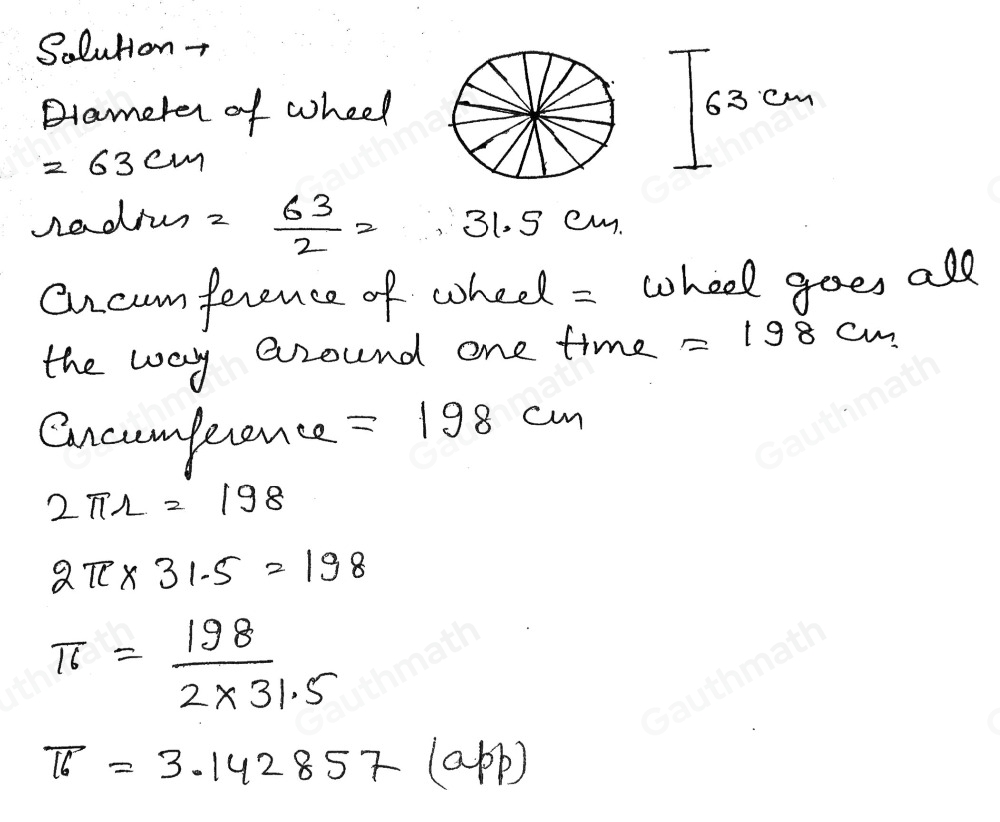 Solution →
Diameter of wheel
= 63 cm
63 cm
radius = 63/2 = 31.5 cm.
Circumference of wheel = wheel goes all
the way around one time = 198 cm.
Circumference = 198 cm
2πr = 198
2π × 31.5 = 198
π = 198/(2 × 31.5)
π = 3.142857 (app)
Gauthmath